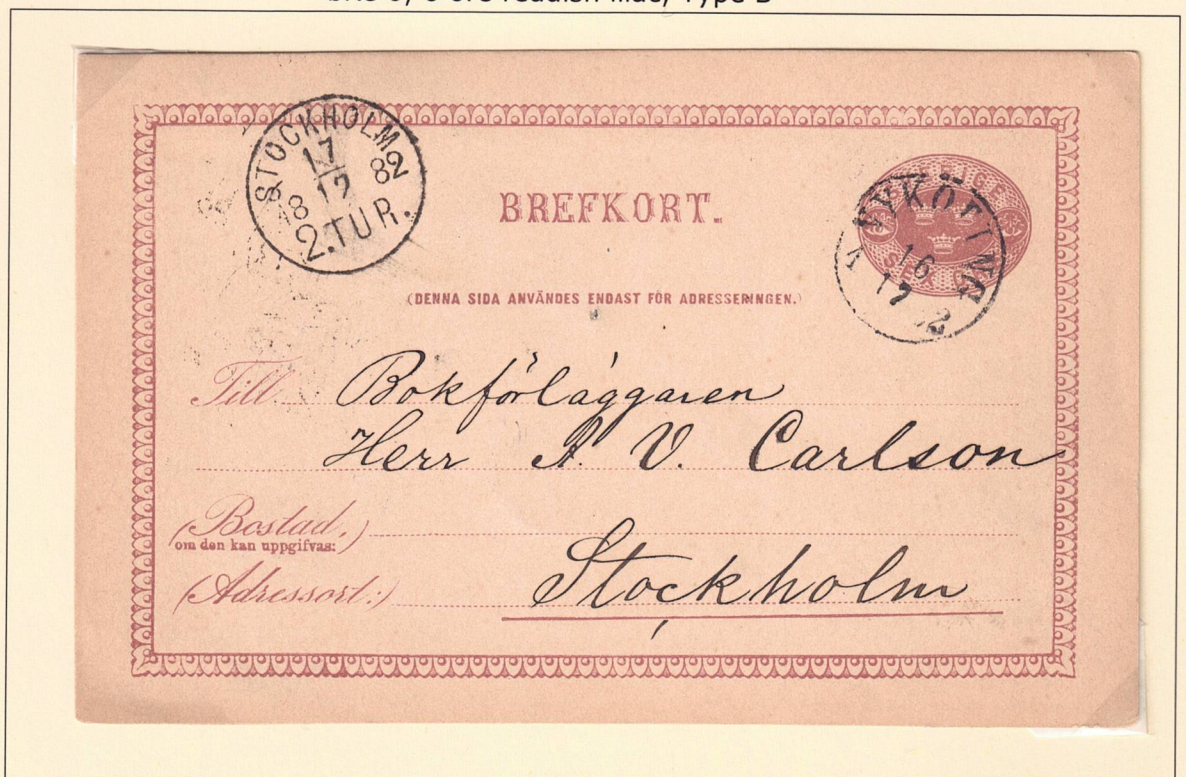 STOCKHOLM
17
12
18 82
2.TUR.
BREFKORT.
SVERIGE
SEX
NYKÖPING
16
12
(DENNA SIDA ANVÄNDES ENDAST FÖR ADRESSERINGEN.)
Till Bokförläggaren
Herr A. V. Carlson
(Bostad,
om den kan uppgifvas:)
(Adressort:) Stockholm